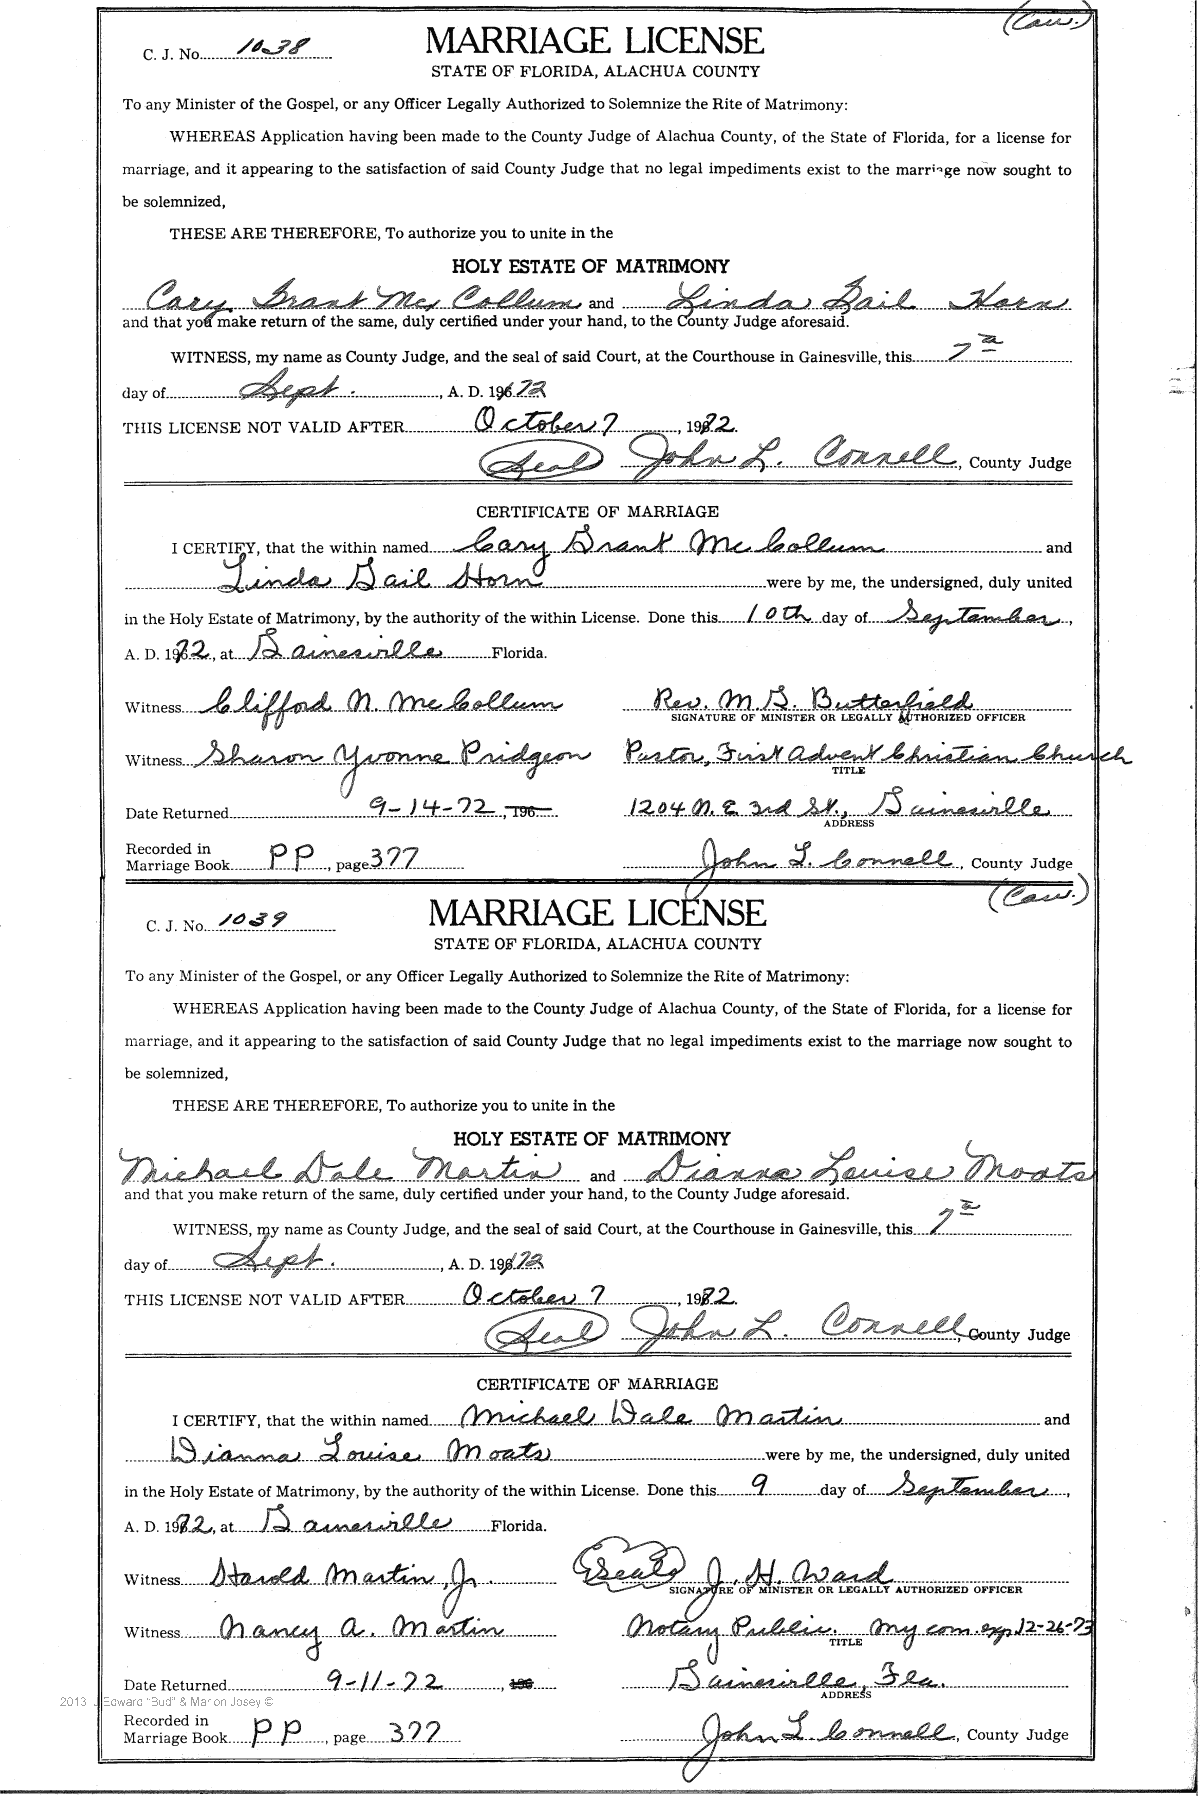 (Cau.)
C. J. No. 1038
MARRIAGE LICENSE
STATE OF FLORIDA, ALACHUA COUNTY
To any Minister of the Gospel, or any Officer Legally Authorized to Solemnize the Rite of Matrimony:
WHEREAS Application having been made to the County Judge of Alachua County, of the State of Florida, for a license for
marriage, and it appearing to the satisfaction of said County Judge that no legal impediments exist to the marriage now sought to
be solemnized,
THESE ARE THEREFORE, To authorize you to unite in the
HOLY ESTATE OF MATRIMONY
Cary Grant McCollum and Linda Gail Horn
and that you make return of the same, duly certified under your hand, to the County Judge aforesaid.
WITNESS, my name as County Judge, and the seal of said Court, at the Courthouse in Gainesville, this 7th
day of Sept., A. D. 1972
THIS LICENSE NOT VALID AFTER October 7, 1972.
(Seal) John L. Connell, County Judge
CERTIFICATE OF MARRIAGE
I CERTIFY, that the within named Cary Grant McCollum and
Linda Gail Horn were by me, the undersigned, duly united
in the Holy Estate of Matrimony, by the authority of the within License. Done this 10th day of September,
A. D. 1972, at Gainesville Florida.
Witness Clifford N. McCollum Rev. M. G. Butterfield
SIGNATURE OF MINISTER OR LEGALLY AUTHORIZED OFFICER
Witness Sharon Yvonne Pridgeon Pastor, First Advent Christian Church
TITLE
Date Returned 9-14-72, 196 1204 N. E. 3rd St., Gainesville
ADDRESS
Recorded in
Marriage Book PP, page 377 John L. Connell, County Judge
(Cau.)
C. J. No. 1039
MARRIAGE LICENSE
STATE OF FLORIDA, ALACHUA COUNTY
To any Minister of the Gospel, or any Officer Legally Authorized to Solemnize the Rite of Matrimony:
WHEREAS Application having been made to the County Judge of Alachua County, of the State of Florida, for a license for
marriage, and it appearing to the satisfaction of said County Judge that no legal impediments exist to the marriage now sought to
be solemnized,
THESE ARE THEREFORE, To authorize you to unite in the
HOLY ESTATE OF MATRIMONY
Michael Dale Martin and Dianna Louise Moats
and that you make return of the same, duly certified under your hand, to the County Judge aforesaid.
WITNESS, my name as County Judge, and the seal of said Court, at the Courthouse in Gainesville, this 7th
day of Sept., A. D. 1972
THIS LICENSE NOT VALID AFTER October 7, 1972.
(Seal) John L. Connell, County Judge
CERTIFICATE OF MARRIAGE
I CERTIFY, that the within named Michael Dale Martin and
Dianna Louise Moats were by me, the undersigned, duly united
in the Holy Estate of Matrimony, by the authority of the within License. Done this 9 day of September,
A. D. 1972, at Gainesville Florida.
Witness Harold Martin, Jr. (Seal) J. H. Ward
SIGNATURE OF MINISTER OR LEGALLY AUTHORIZED OFFICER
Witness Nancy A. Martin Notary Public. My com. exp. 12-26-73
TITLE
Date Returned 9-11-72, 196 Gainesville, Fla.
ADDRESS
2013 J Edward "Bud" & Marion Josey ©
Recorded in
Marriage Book PP, page 377 John L. Connell, County Judge